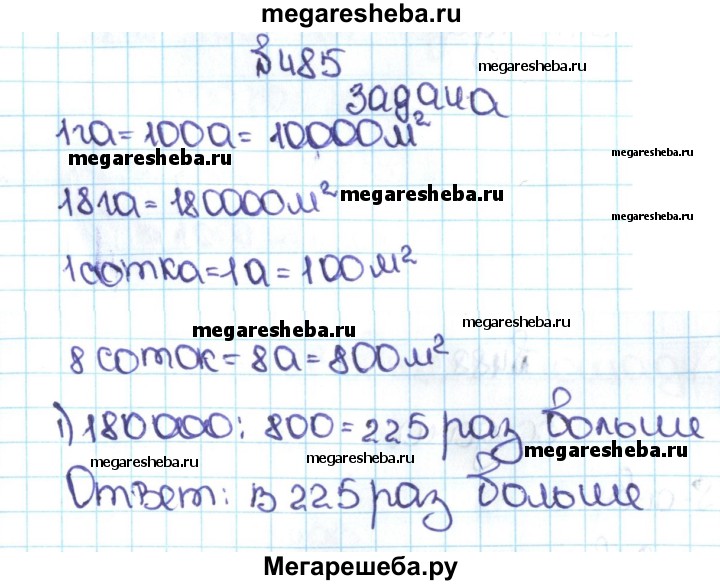 megaresheba.ru
№485
megaresheba.ru
задача
1га=100а=10000м²
megaresheba.ru
megaresheba.ru
18га=180000м²
megaresheba.ru
megaresheba.ru
1сотка=1а=100м²
megaresheba.ru
megaresheba.ru
8 соток=8а=800м²
1) 180000: 800=225 раз больше
megaresheba.ru
megaresheba.ru
megaresheba.ru
Ответ: в 225 раз больше
Мегарешеба.ру